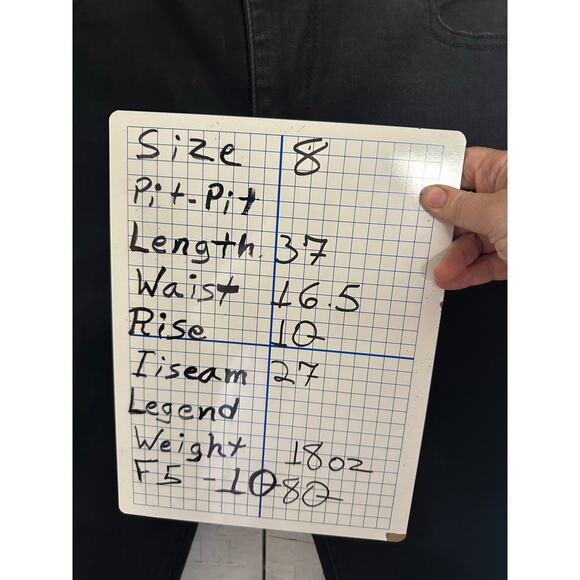 Size 8
Pit-Pit
Length. 37
Waist 16.5
Rise 10
Iiseam 27
Legend
Weight 18oz
F5 -1080